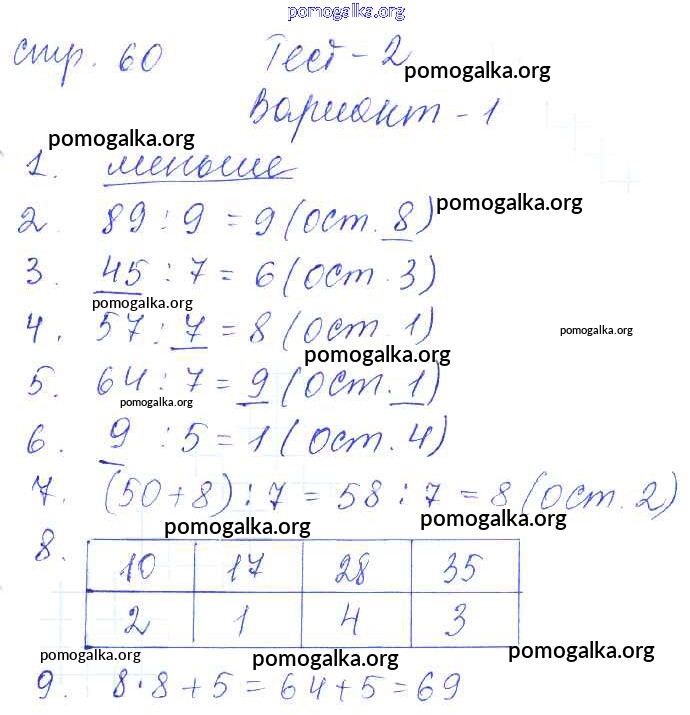 pomogalka.org
стр. 60 Тест-2
pomogalka.org
Вариант-1
pomogalka.org
1. меньше
2. 89 : 9 = 9 (ост. 8) pomogalka.org
3. 45 : 7 = 6 (ост. 3)
pomogalka.org
4. 57 : 7 = 8 (ост. 1) pomogalka.org
pomogalka.org
5. 64 : 7 = 9 (ост. 1)
pomogalka.org
6. 9 : 5 = 1 (ост. 4)
7. (50 + 8) : 7 = 58 : 7 = 8 (ост. 2)
pomogalka.org pomogalka.org
8. 10 17 28 35
2 1 4 3
pomogalka.org pomogalka.org pomogalka.org
9. 8 · 8 + 5 = 64 + 5 = 69